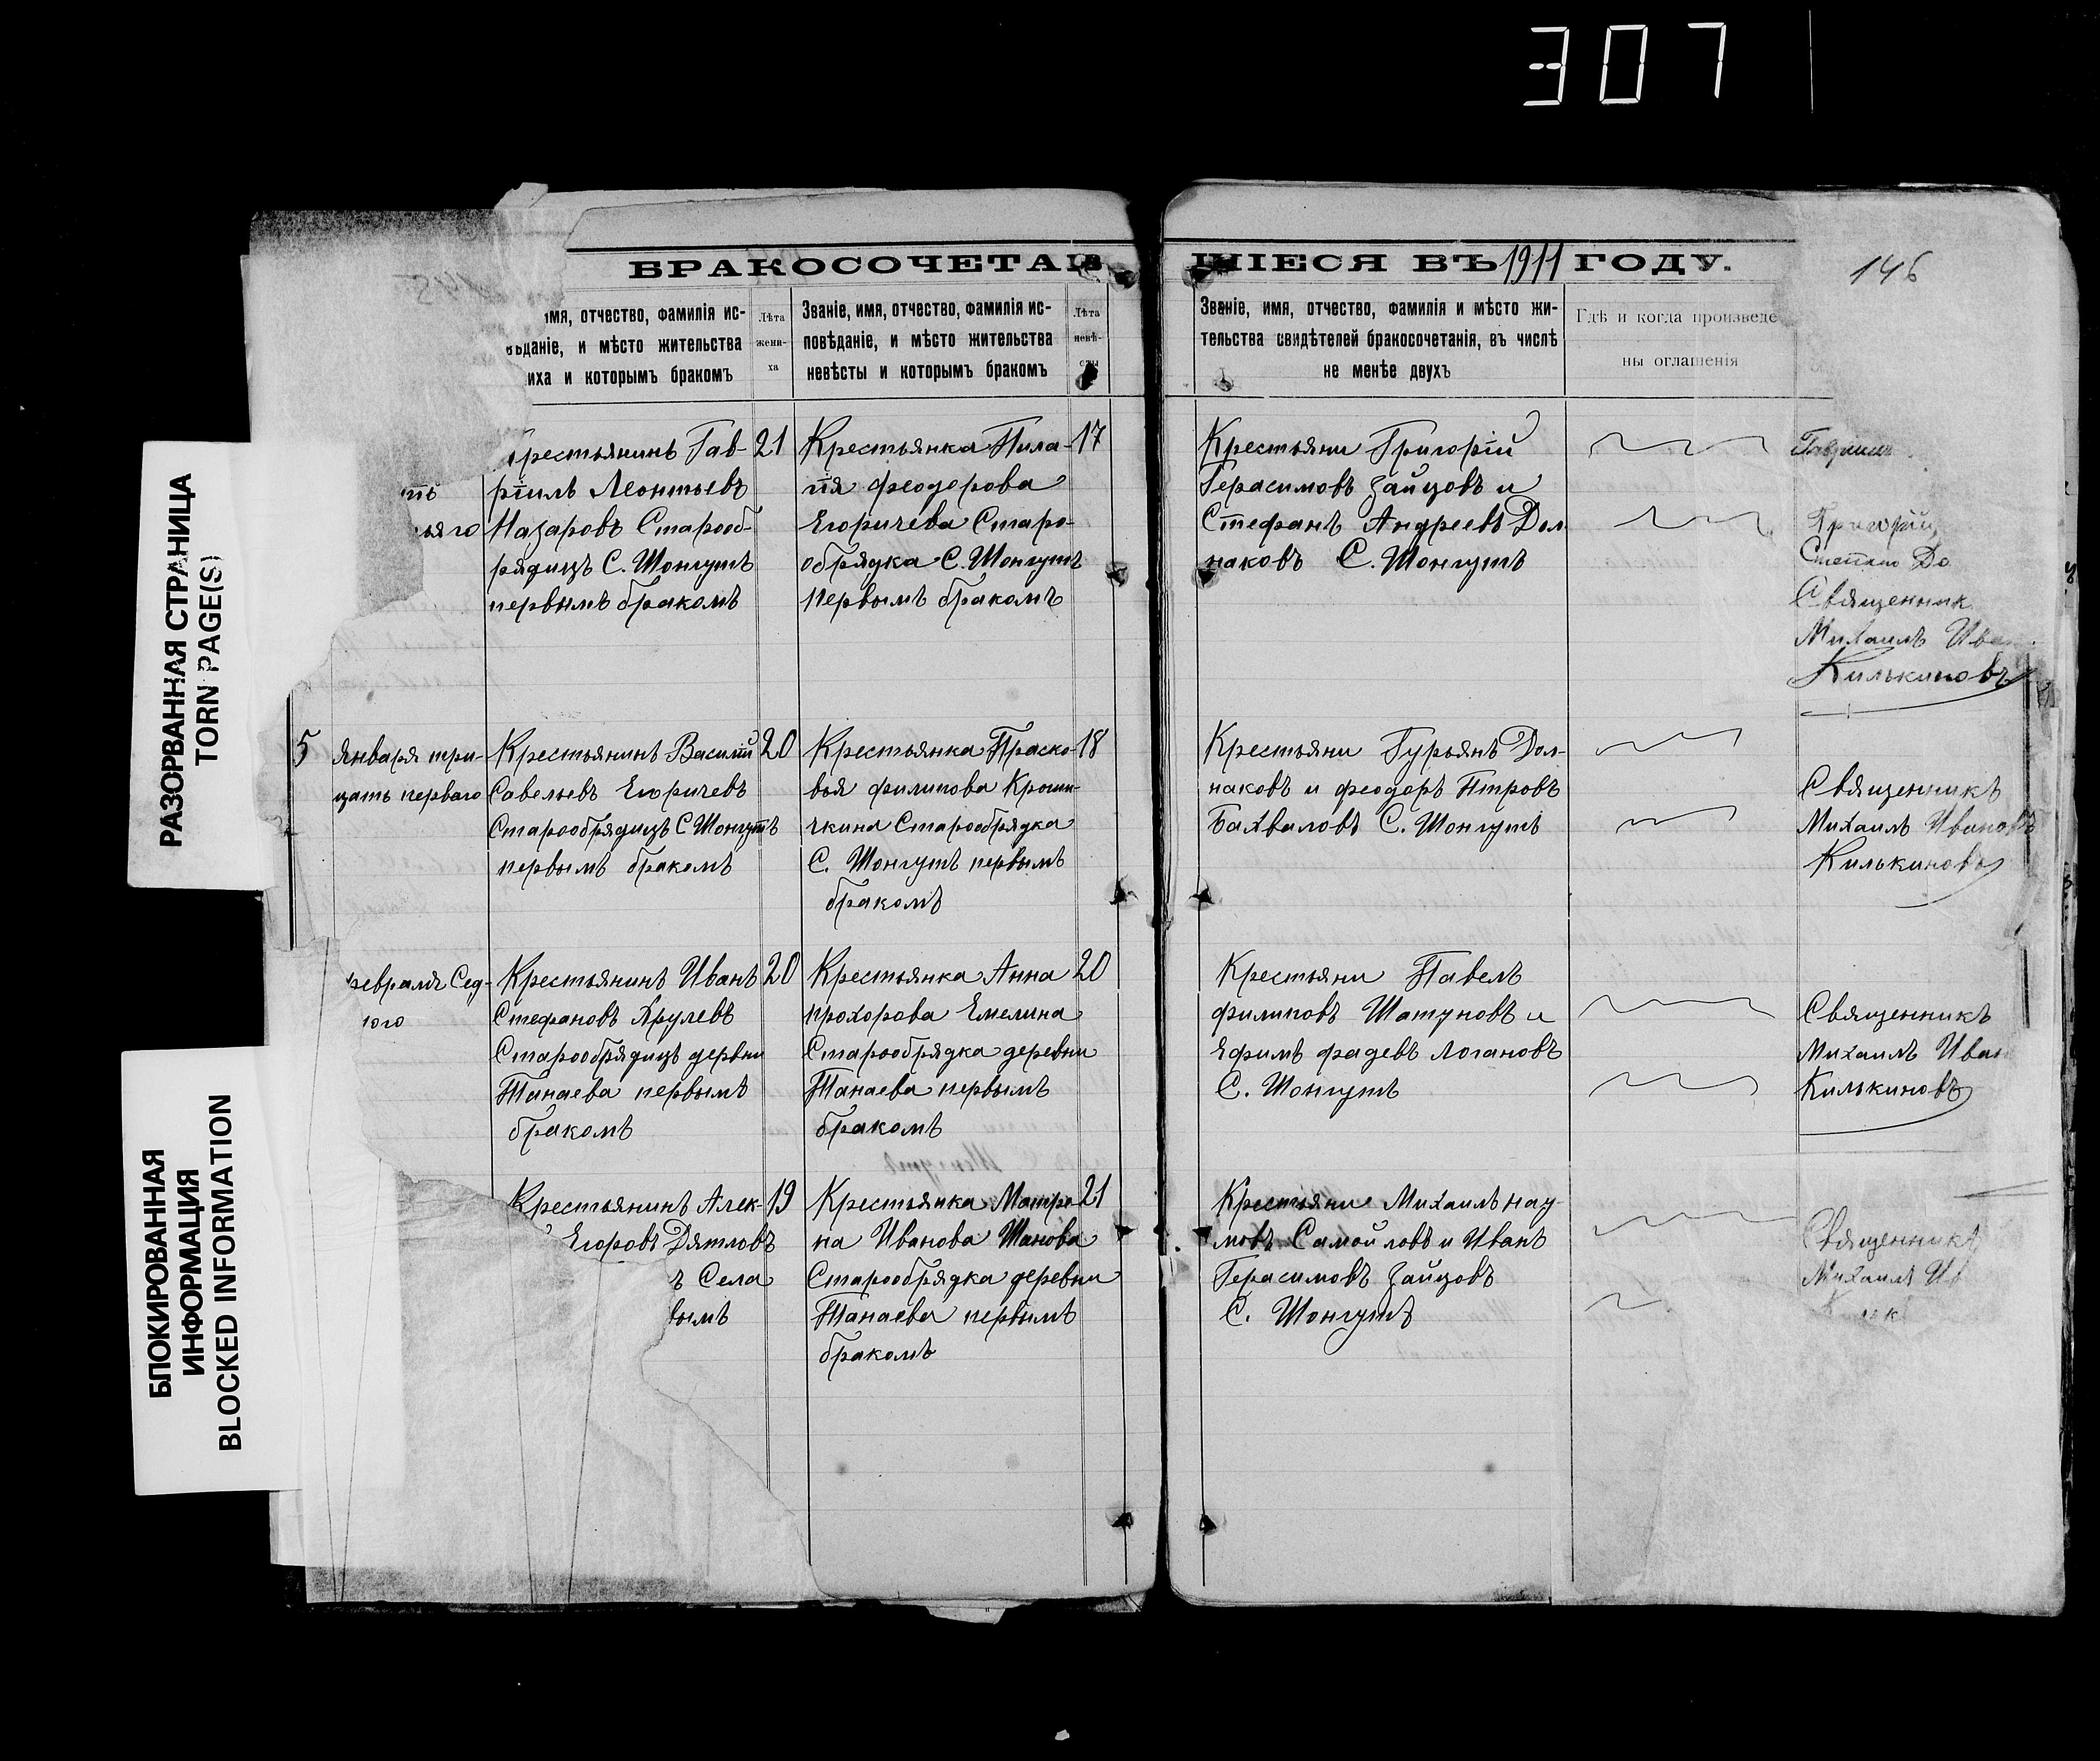 307
РАЗОРВАННАЯ СТРАНИЦА
TORN PAGE(S)
БЛОКИРОВАННАЯ
ИНФОРМАЦИЯ
BLOCKED INFORMATION
БРАКОСОЧЕТАВ
ШІЕСЯ ВЪ 1911 ГОДУ.
146
имя, отчество, фамилія ис-
вѣданіе, и мѣсто жительства
иха и которымъ бракомъ
Лѣта
жени-
ха
Званіе, имя, отчество, фамилія ис-
повѣданіе, и мѣсто жительства
невѣсты и которымъ бракомъ
Лѣта
невѣ-
сты
Званіе, имя, отчество, фамилія и мѣсто жи-
тельства свидѣтелей бракосочетанія, въ числѣ
не менѣе двухъ
Гдѣ и когда произведе
ны оглашенія
Крестьянинъ Гав-
ріилъ Леонтьевъ
Назаровъ Старооб-
рядицъ С. Шонгутъ
первымъ бракомъ
21
Крестьянка Пила-
гія феодорова
Егоричева Старо-
обрядка С. Шонгутъ
первымъ бракомъ
17
Крестьяни Григорій
Герасимовъ Зайцовъ и
Стефанъ Андреевъ Дол
наковъ С. Шонгутъ
Гавриил
Григорій
Степан До
Священник
Михаилъ Ива
Килькиновъ
5
Января три-
цать перваго
Крестьянинъ Василій
Савельевъ Егоричевъ
Старообрядицъ С Шонгутъ
первымъ бракомъ
20
Крестьянка Праско-
вья филипова Кроши-
чкина Старообрядка
С. Шонгутъ первымъ
бракомъ
18
Крестьяни Гурьянъ Дол-
наковъ и феодоръ Птровъ
Бахваловъ С. Шонгутъ
Священникъ
Михаилъ Ивановъ
Килькиновъ
февраля Сед-
мого
Крестьянинъ Иванъ
Стефановъ Хрулевъ
Старообрядицъ дервни
Танаева первымъ
бракомъ
20
Крестьянка Анна
прохорова Емелина
Старообрядка деревни
Танаева первымъ
бракомъ
20
Крестьяни Павелъ
филиповъ Шатуновъ и
Ефимъ фадевъ Логановъ
С. Шонгутъ
Священникъ
Михаилъ Иван
Килькиновъ
Крестьянинъ Алек-
Егоровъ Дятловъ
ъ Села
вымъ
19
Крестьянка Матро
на Иванова Шанова
Старообрядка деревни
Танаева первымъ
бракомъ
21
Крестьяни Михаилъ нау-
мовъ Самойловъ и Иванъ
Герасимовъ Зайцовъ
С. Шонгутъ
Священникъ
Михаилъ Ив